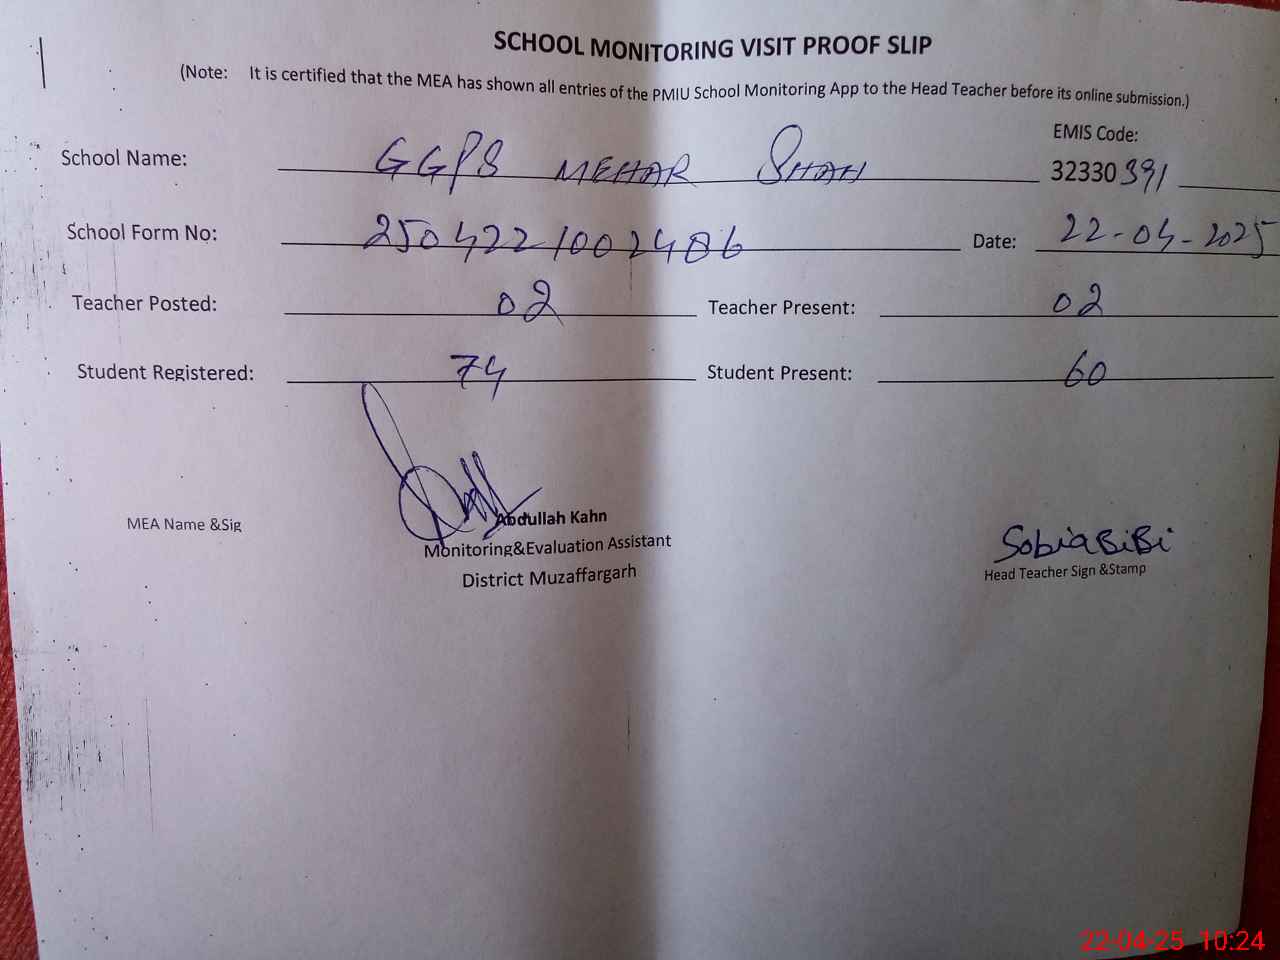 SCHOOL MONITORING VISIT PROOF SLIP
(Note: It is certified that the MEA has shown all entries of the PMIU School Monitoring App to the Head Teacher before its online submission.)
EMIS Code:
School Name: GGPS MEHAR SHAH 32330391
School Form No: 2504221002486 Date: 22-04-2025
Teacher Posted: 02 Teacher Present: 02
Student Registered: 74 Student Present: 60
MEA Name &Sig
Abdullah Kahn
Monitoring&Evaluation Assistant
District Muzaffargarh
Sobia BiBi
Head Teacher Sign &Stamp
22-04-25 10:24